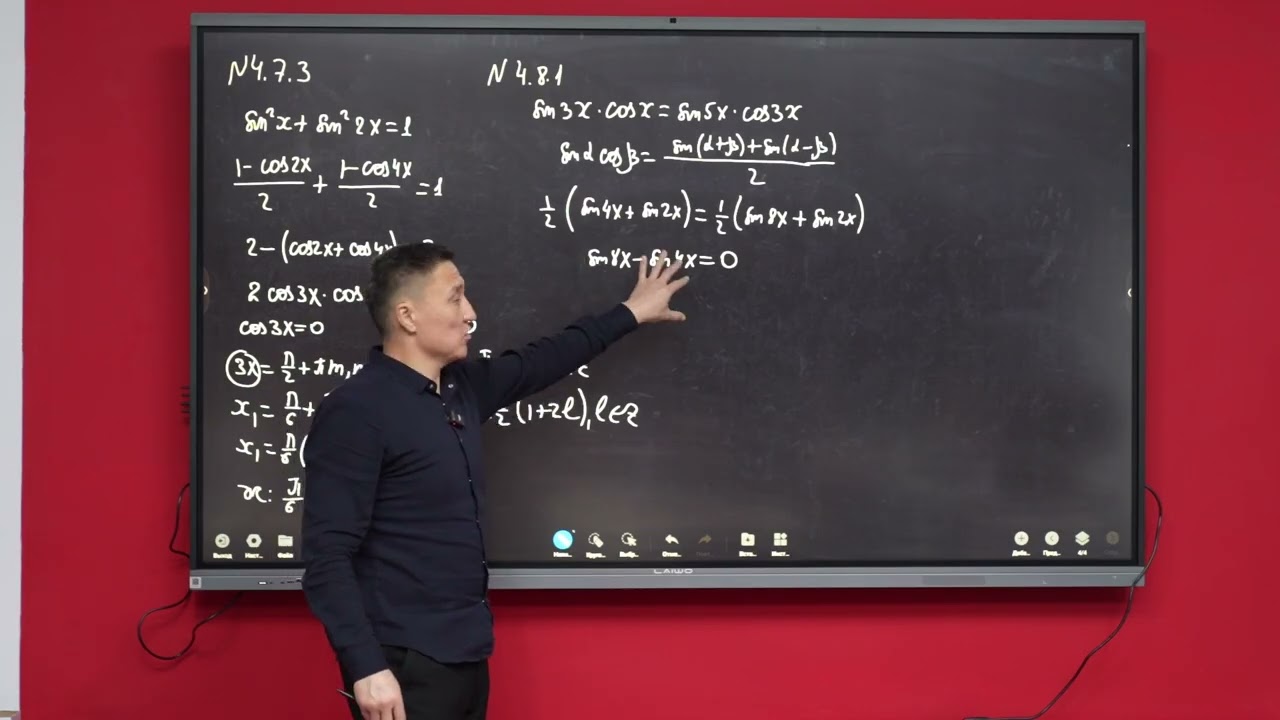 N4.7.3
sin²x + sin²2x = 1
1 - cos2x / 2 + 1 - cos4x / 2 = 1
2 - (cos2x + cos4x)
2 cos3x · cos
cos3x = 0
3x = π/2 + πm,
x₁ = π/6 +
x₁ = π/6 (
x: π/6
(1+2l), l∈Z
N 4.8.1
sin3x · cosx = sin5x · cos3x
sinα cosβ = sin(α+β) + sin(α-β) / 2
1/2 (sin4x + sin2x) = 1/2 (sin8x + sin2x)
sin8x - sin4x = 0
Выход
Файл
LAIWO
4/4